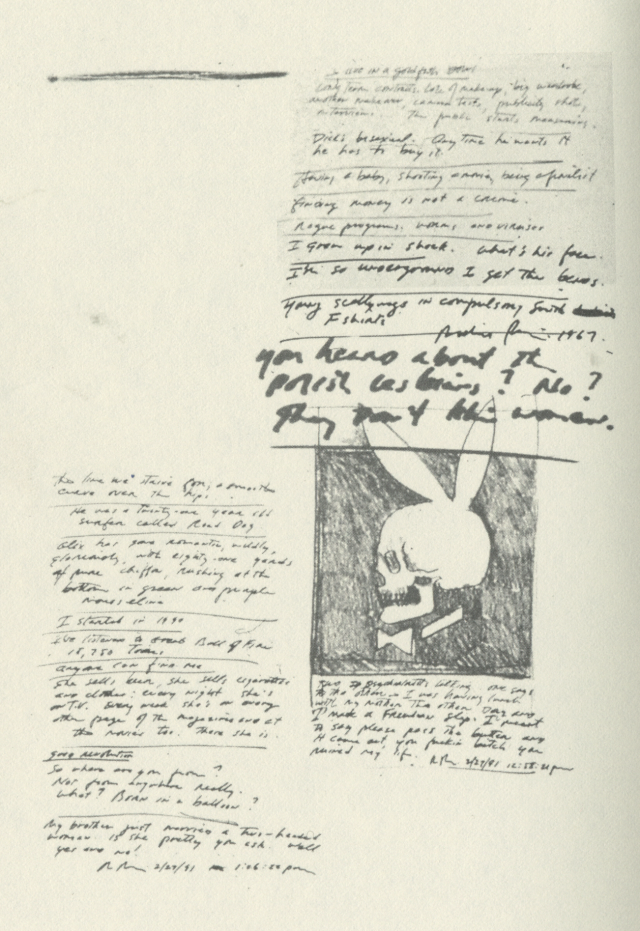 I live in a goldfish bowl
Long term contracts. Lots of make-up, big wardrobe,
another makeover, camera tests, publicity shots,
interviews. The public starts
Dick's bisexual. Any time he wants it
he has to buy it.
Having a baby, shooting a movie, being a finalist
Finding money is not a crime.
Rogue programs, worms and viruses
I grow up in shock. What's his face.
I'm so underground I get the bends.
Young scallywags in compulsory Smith
F shirts
1967.
You heard about the
polish lesbians? No?
They don't like women.
the line we strive for, a smooth
curve over the hips.
He was a twenty-one year old
surfer called Road Dog
has gone romantic, wildly,
gloriously, with eighty-one yards
of pure chiffon, rushing at the
bottom in green and purple
mousseline
I started in 1990
I've listened to Great Ball of Fire
15,750 times
Anyone can find me
She sells beer, she sells cigarettes
and clothes: every night she's
on T.V. Every week she's on every
other page of the magazines and at
the movies too. There she is.
good revolution
So where are you from?
Not from anywhere really.
What? Born in a balloon?
My brother just married a two-headed
woman. Is she pretty you ask. Well
yes and no!
2/27/91 1:06:50 pm
Two psychiatrists talking, one says
to the other, I was having lunch
with my mother the other day and
I made a Freudian slip. I meant
to say please pass the butter and
it came out, you fuckin bitch you
ruined my life.
2/27/91 12:58:21 pm